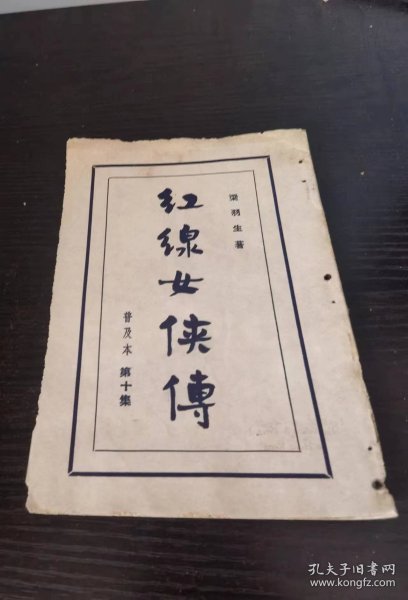 梁羽生著
红線女俠傳
普及本 第十集
孔夫子旧书网
www.kongfz.com